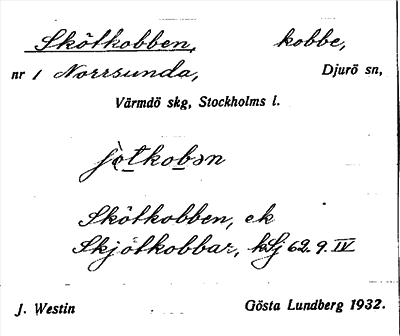 Skötkobben, kobbe,
nr 1 Norrsunda, Djurö sn,
Värmdö skg, Stockholms l.
Skötkobben, ek
Skjötkobbar, kSj 62.9.IV
J. Westin Gösta Lundberg 1932.